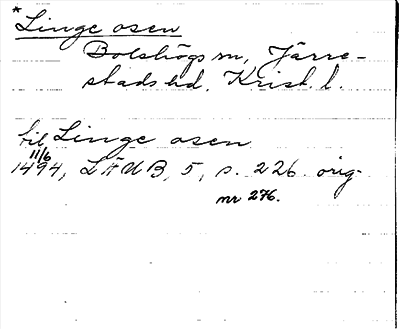 * Linge osen
Bolshögs sn, Järre-
stads hd, Krist. l.
til Linge osen
11/6
1494, LÄUB, 5, s. 226 orig.
nr 276.